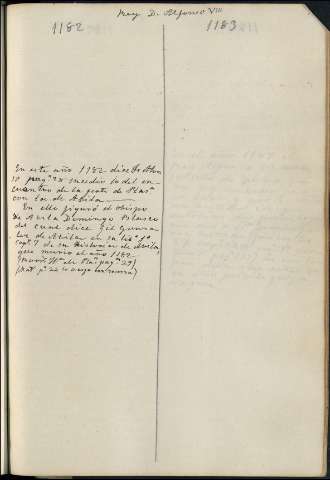 Rey D. Alfonso VIII
1182 1183
En este año 1182 dice
pag.ª sucedió lo del en-
cuentro de la gente de Plas.ª
con los de Avila
En ella figuró el obispo
de Avila Domingo Blasco
del cual dice Gil Gonza-
lez de Avila en su lib.º 1º
cap.º 7 de su Historia de Avila,
que murió el año 1182
pag.ª 29)